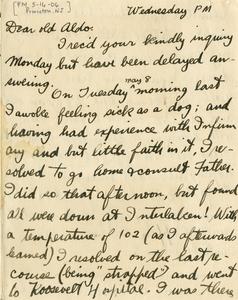 [PM, 5-16-06
Princeton, NJ]
Wednesday PM
Dear old Aldo:
I rec'd your kindly inquiry
Monday but have been delayed an-
swering.
may 8
On Tuesday ^ morning last
I awoke feeling sick as a dog; and
having had experience with Infirm
ary and but little faith in it, I re-
solved to go home & consult Father.
I did so that afternoon, but found
all were down at Interlaken! With
a temperature of 102 (as I afterwards
learned) I resolved on the last re-
course (being "strapped") and went
to Roosevelt Hospital. I was there